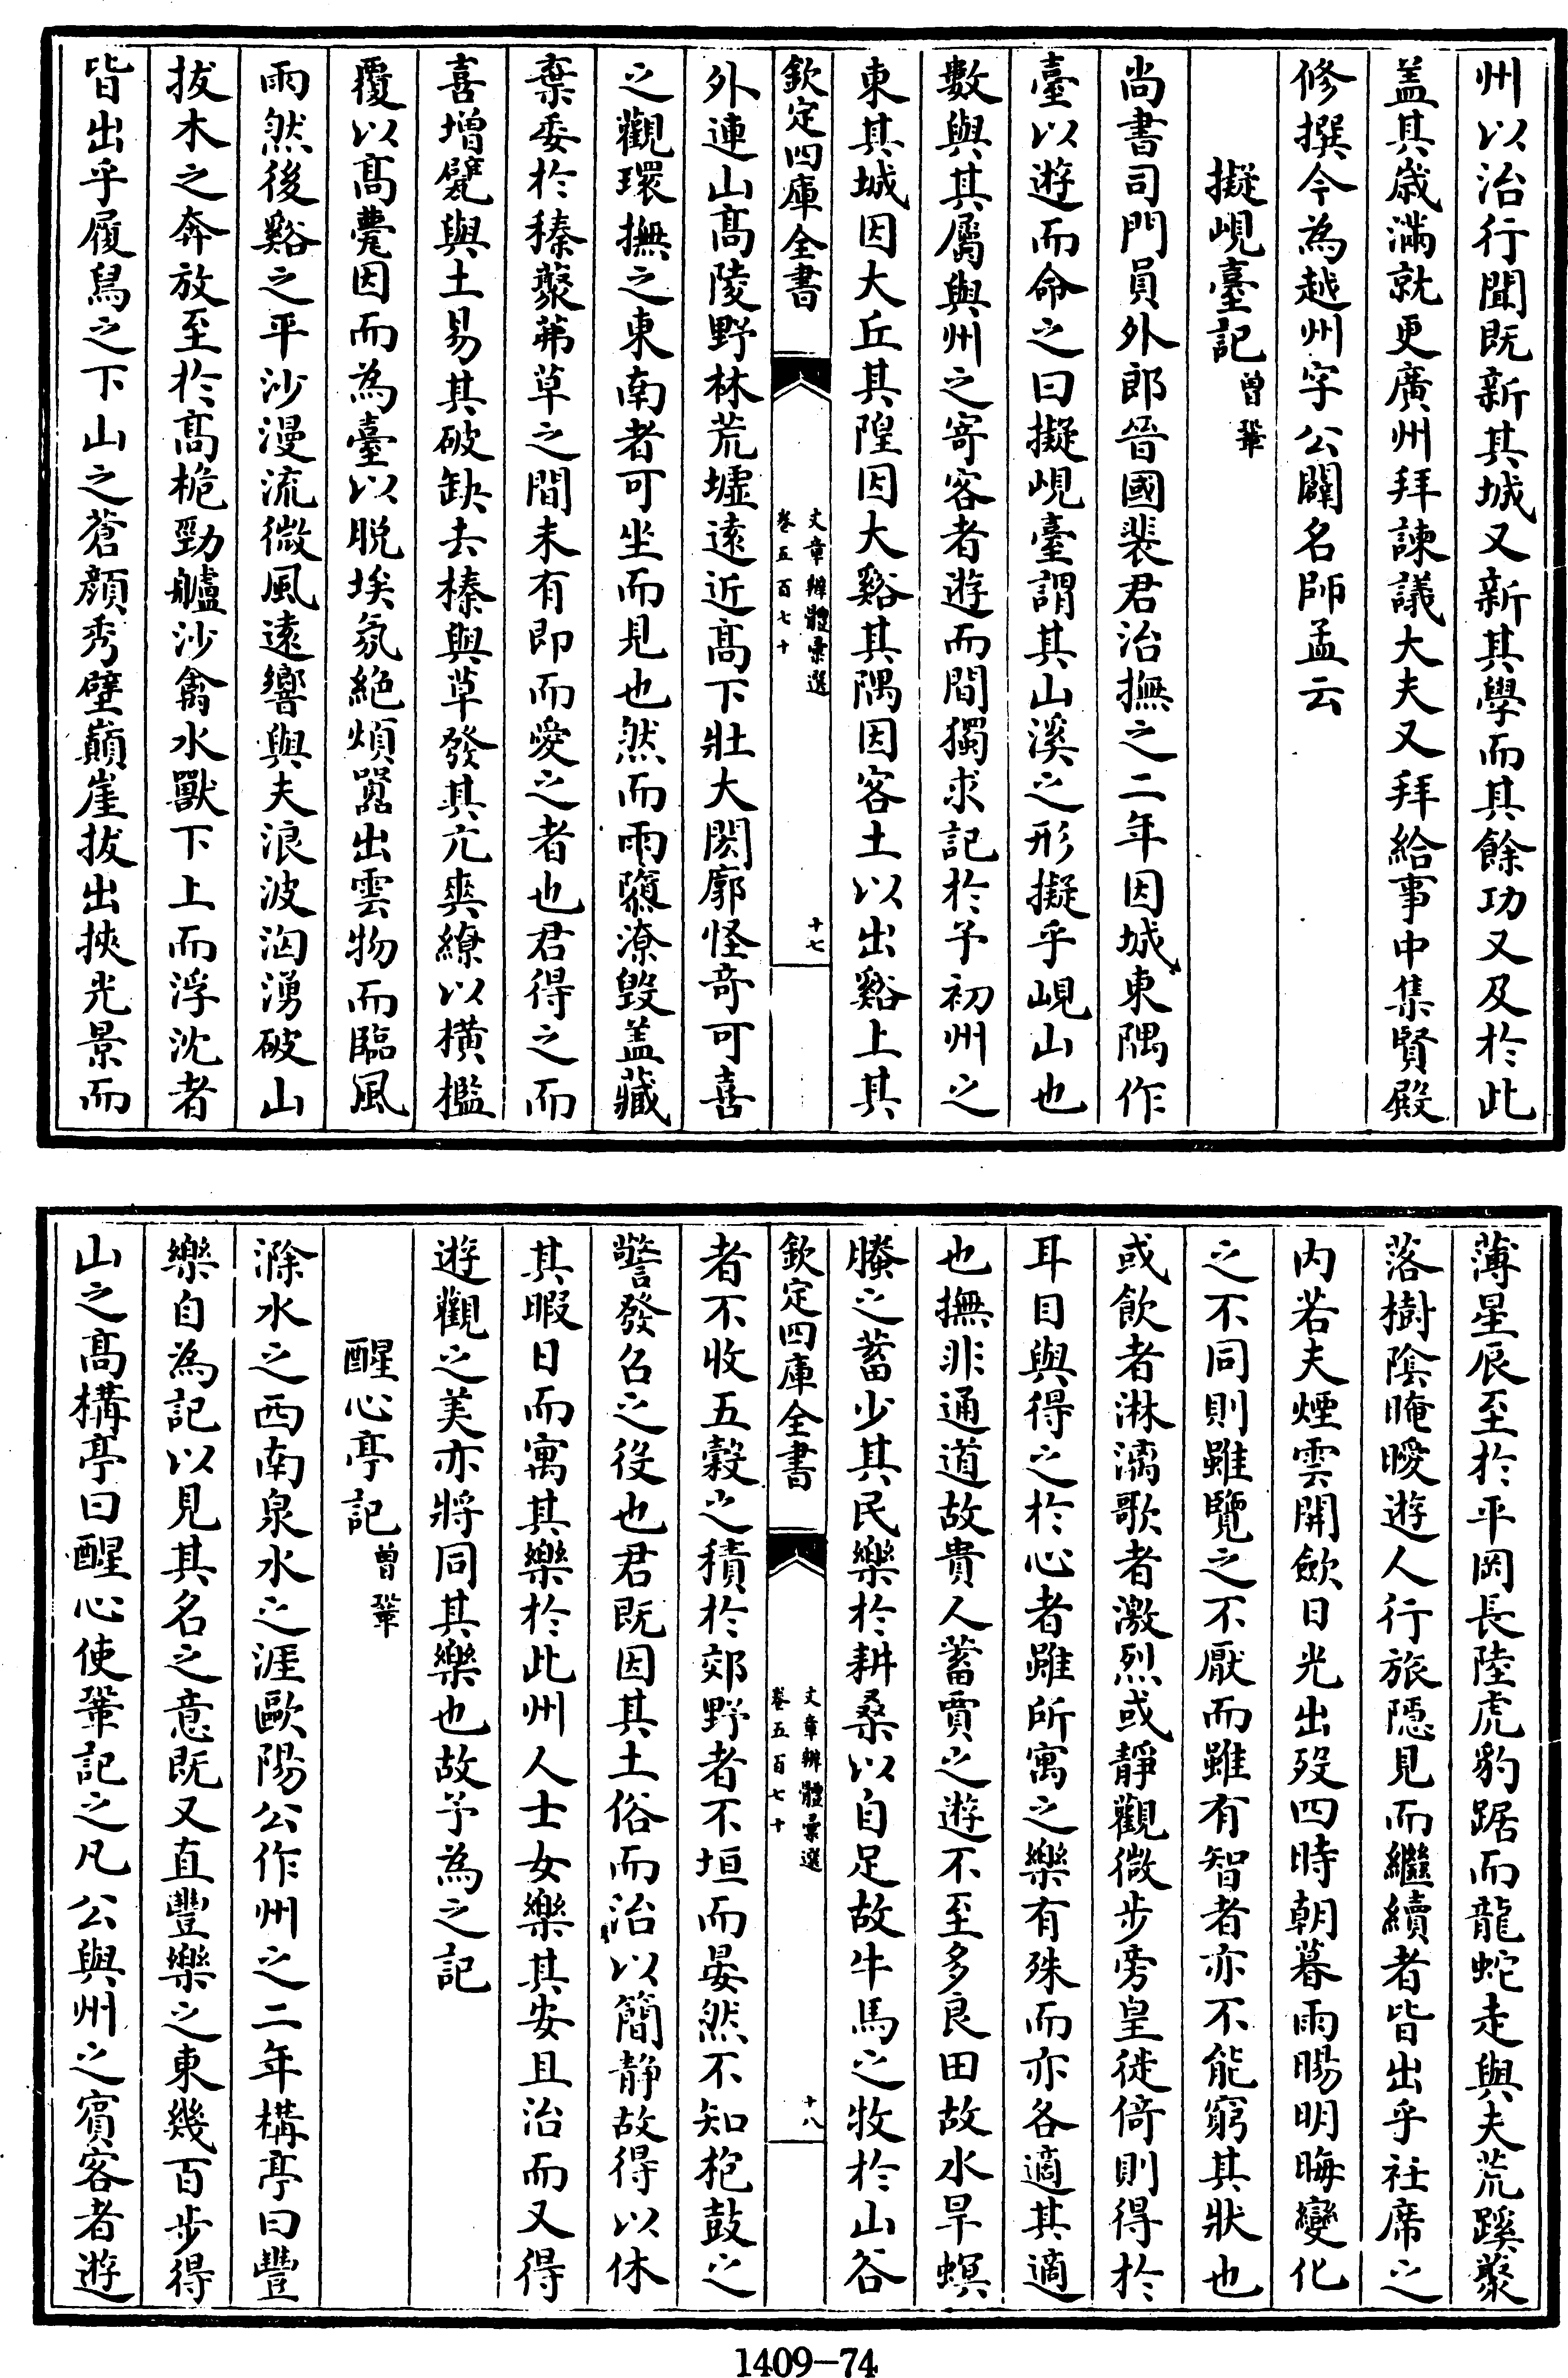 州以治行聞既新其城又新其學而其餘功又及於此
蓋其歲滿就更廣州拜諫議大夫又拜給事中集賢殿
修撰今為越州字公闢名師孟云
擬峴臺記曾鞏
尚書司門員外郎晉國裴君治撫之二年因城東隅作
臺以遊而命之曰擬峴臺謂其山溪之形擬乎峴山也
數與其屬與州之寄客者遊而間獨求記於予初州之
東其城因大丘其隍因大谿其隅因客土以出谿上其
欽定四庫全書
文章辨體彙選
卷五百七十
十七
外連山髙陵野林荒墟逺近髙下壯大閎廓怪竒可喜
之觀環撫之東南者可坐而見也然而雨隳潦毁蓋藏
棄委於榛藂茀草之間未有即而愛之者也君得之而
喜增甓與土易其破缺去榛與草發其亢爽繚以橫檻
覆以髙甍因而為臺以脱埃氛絶煩囂出雲物而臨風
雨然後谿之平沙漫流微風逺響與夫浪波洶湧破山
拔木之奔放至於髙桅勁艫沙禽水獸下上而浮沈者
皆出乎履舄之下山之蒼顔秀壁巔崖拔出挾光景而
薄星辰至於平岡長陸虎豹踞而龍蛇走與夫荒蹊藂
落樹陰晻曖遊人行旅隱見而繼續者皆出乎衽席之
内若夫煙雲開歛日光出殁四時朝暮雨暘明晦變化
之不同則雖覽之不厭而雖有智者亦不能窮其狀也
或飲者淋漓歌者激烈或靜觀微步旁皇徙倚則得於
耳目與得之於心者雖所寓之樂有殊而亦各適其適
也撫非通道故貴人蓄賈之遊不至多良田故水旱螟
螣之菑少其民樂於耕桑以自足故牛馬之牧於山谷
欽定四庫全書
文章辨體彙選
卷五百七十
十八
者不收五穀之積於郊野者不垣而晏然不知枹鼓之
警發召之役也君既因其土俗而治以簡靜故得以休
其暇日而寓其樂於此州人士女樂其安且治而又得
遊觀之美亦將同其樂也故予為之記
醒心亭記曾鞏
滁水之西南泉水之涯歐陽公作州之二年構亭曰豐
樂自為記以見其名之意既又直豐樂之東幾百步得
山之髙構亭曰醒心使鞏記之凡公與州之賔客者遊
1409-74